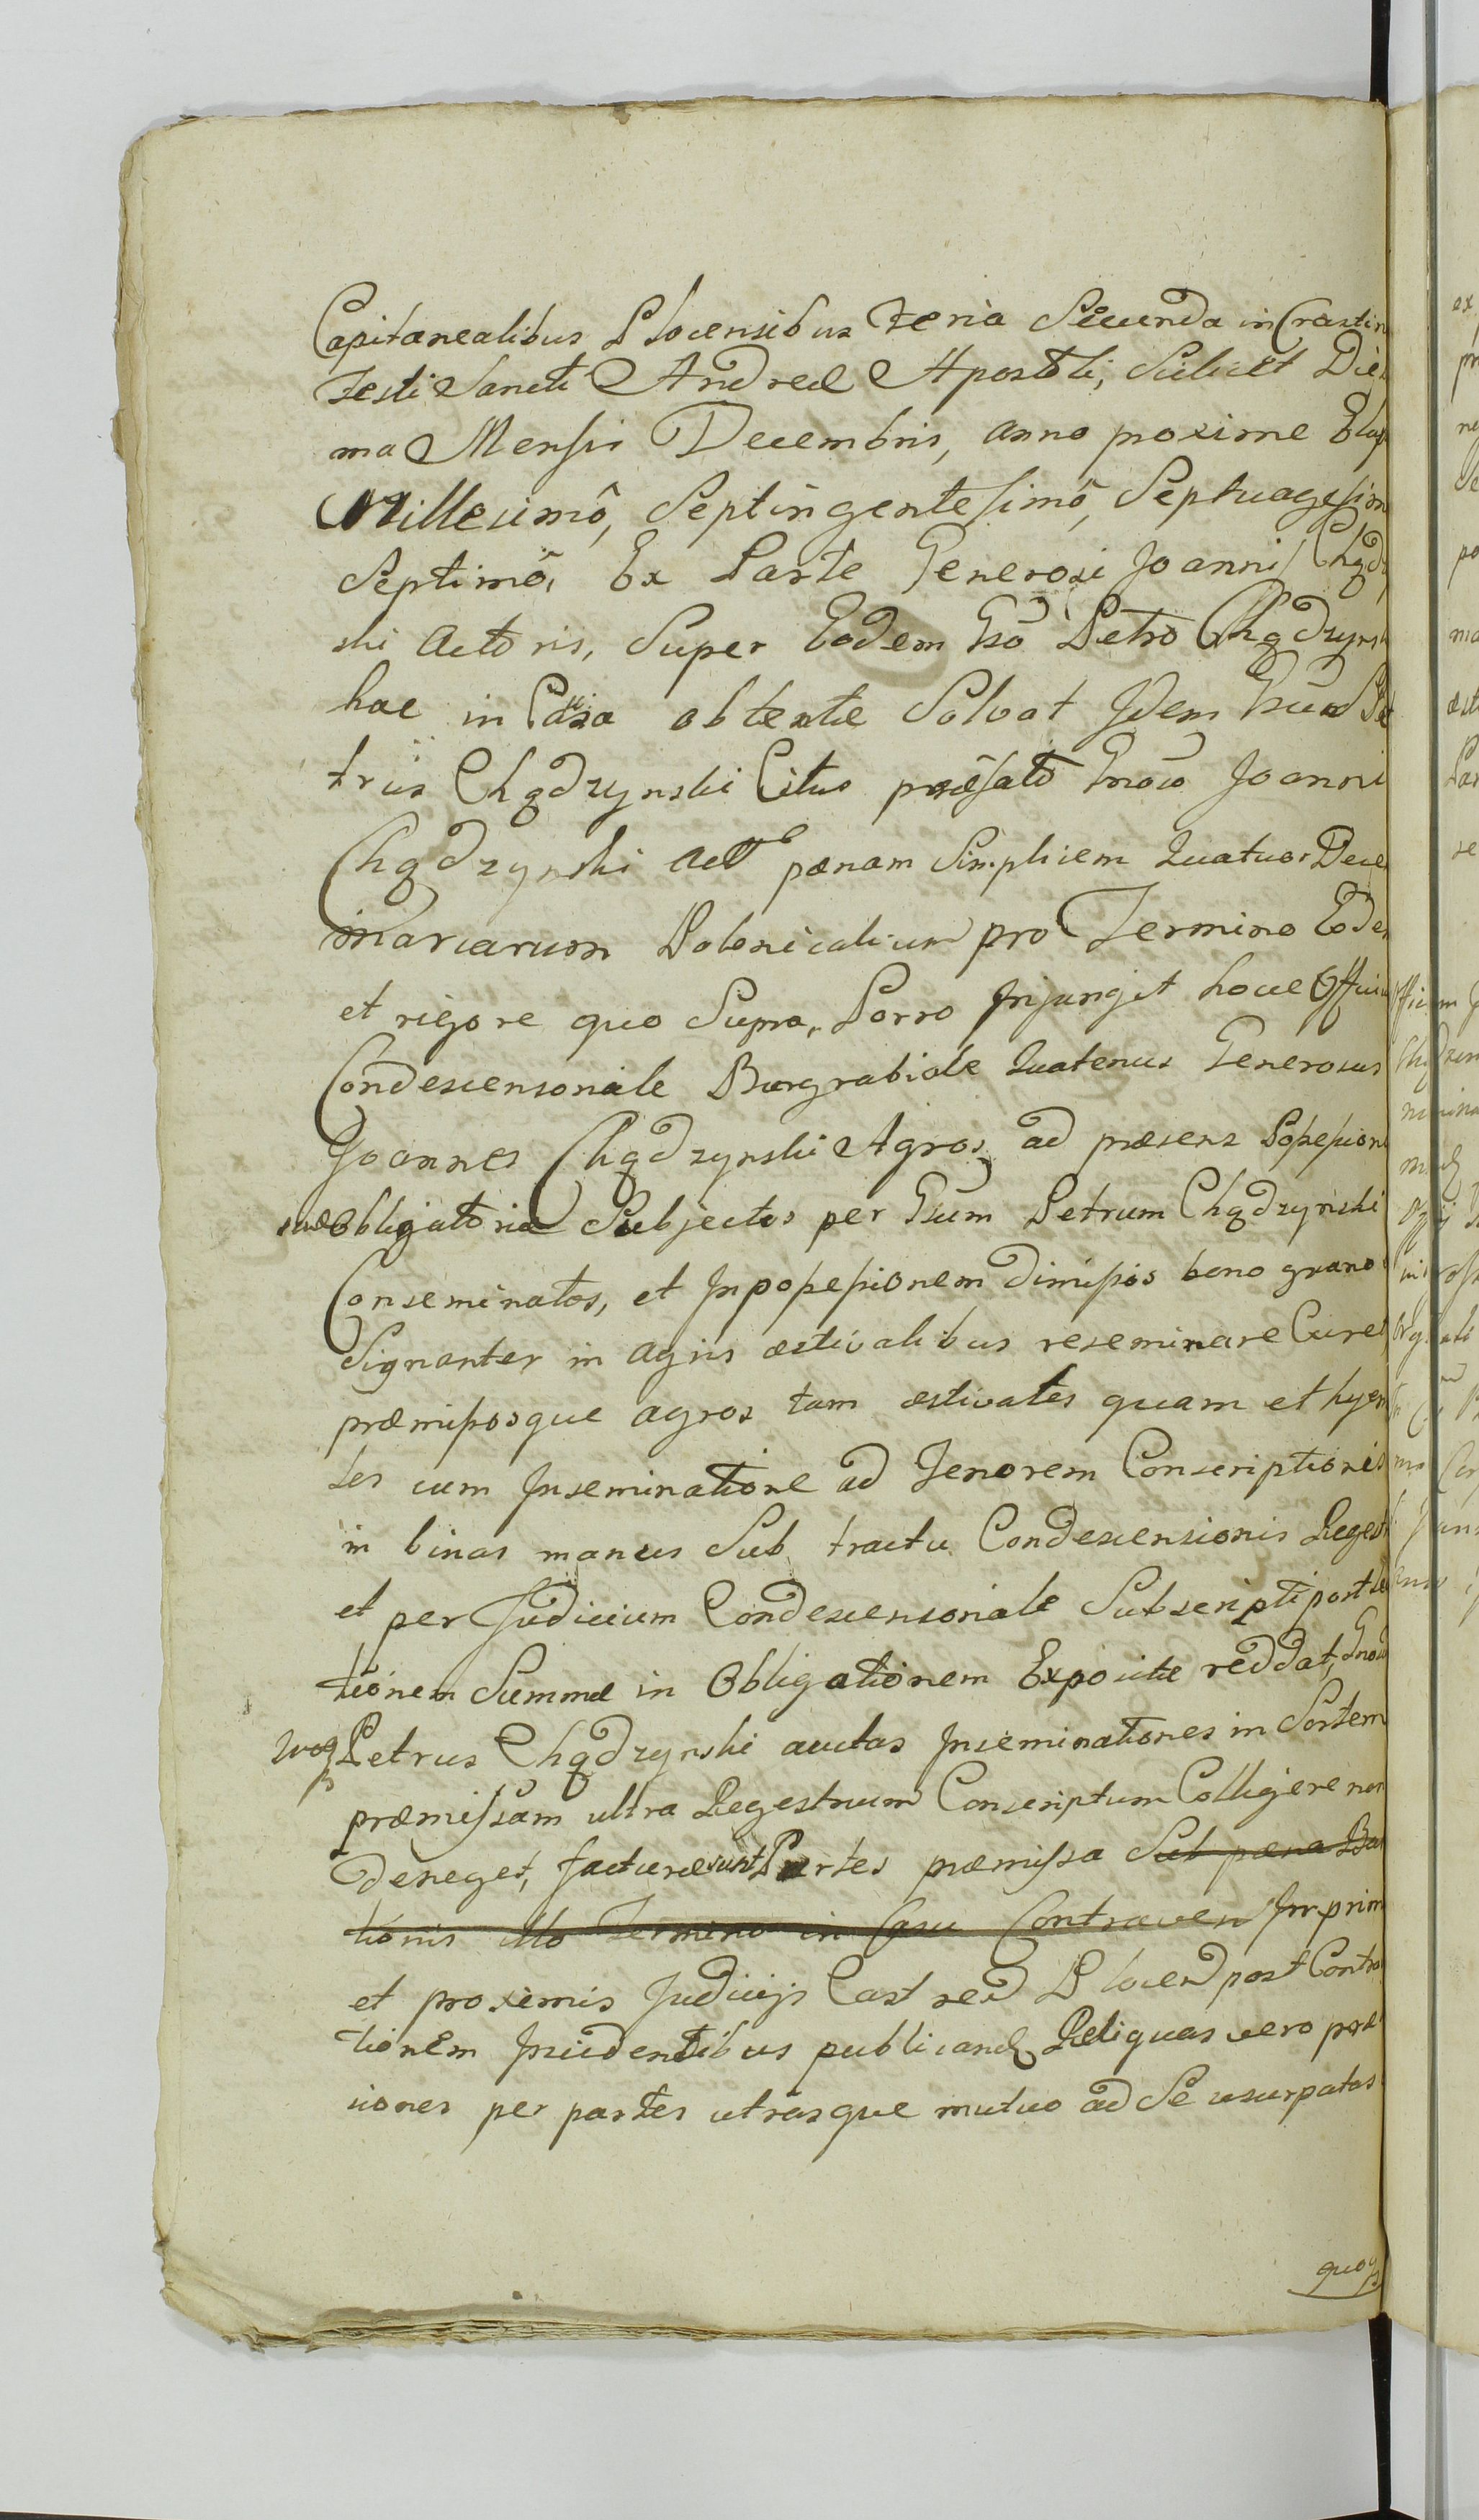 Capitanealibus Plocensibus Feria Secunda in Crastin
Festi Sancti Andreæ Apostoli, Scilicet Die
ma Mensis Decembris, anno proxime Elap
Millesimô, Septingentesimô, Septuagesim
Septimô, Ex Parte Generosi Joannis Chądz
ski Actoris, Super Eodem Gsō Petro Chądzyńs
hac in Causa obtentæ Solvat Idem Gsus Pe
trus Chądzynski Citus præfato Gnōso Joanni
Chądzynski Act pœnam Simplicem Quatuor Dece
marcarum Polonicalium pro Termino Eode
et rigore quo Supra, Porro Injungit hocce Officiu
Condescensoriale Burgrabiale Quatenus Generosus
Joannes Chądzynski Agros ad præsens Possession
suæ Obligatoriæ Subjectos per Gsum Petrum Chądzynski
Conseminatos, et In possessionem dimissos bono grano
Signanter in agris æstivalibus reseminare Curet
præmissosque agros tam æstivales quam et hyem
les cum Inseminatione ad Tenorem Conscriptionis
in binas manus Sub tractu Condescensionis Regest
et per Judicium Condescensoriale Subscripti post le
tionem Summæ in Obligationem Expositæ reddat, Gnosus
Petrus Chądzynski auctas Inseminationes in Sortem
præmissam ultra Regestrum Conscriptum Colligere non
deneget, facturæ sunt Partes præmissa Sub pœna Ban
tionis illo Termino in Casu Contraven In prim
et proximis Judicijs Castren Plocen post Contra
tionem Incidentibus publicand Reliquas vero posse
siones per partes utrasque mutuo ad Se usurpatas
quoq